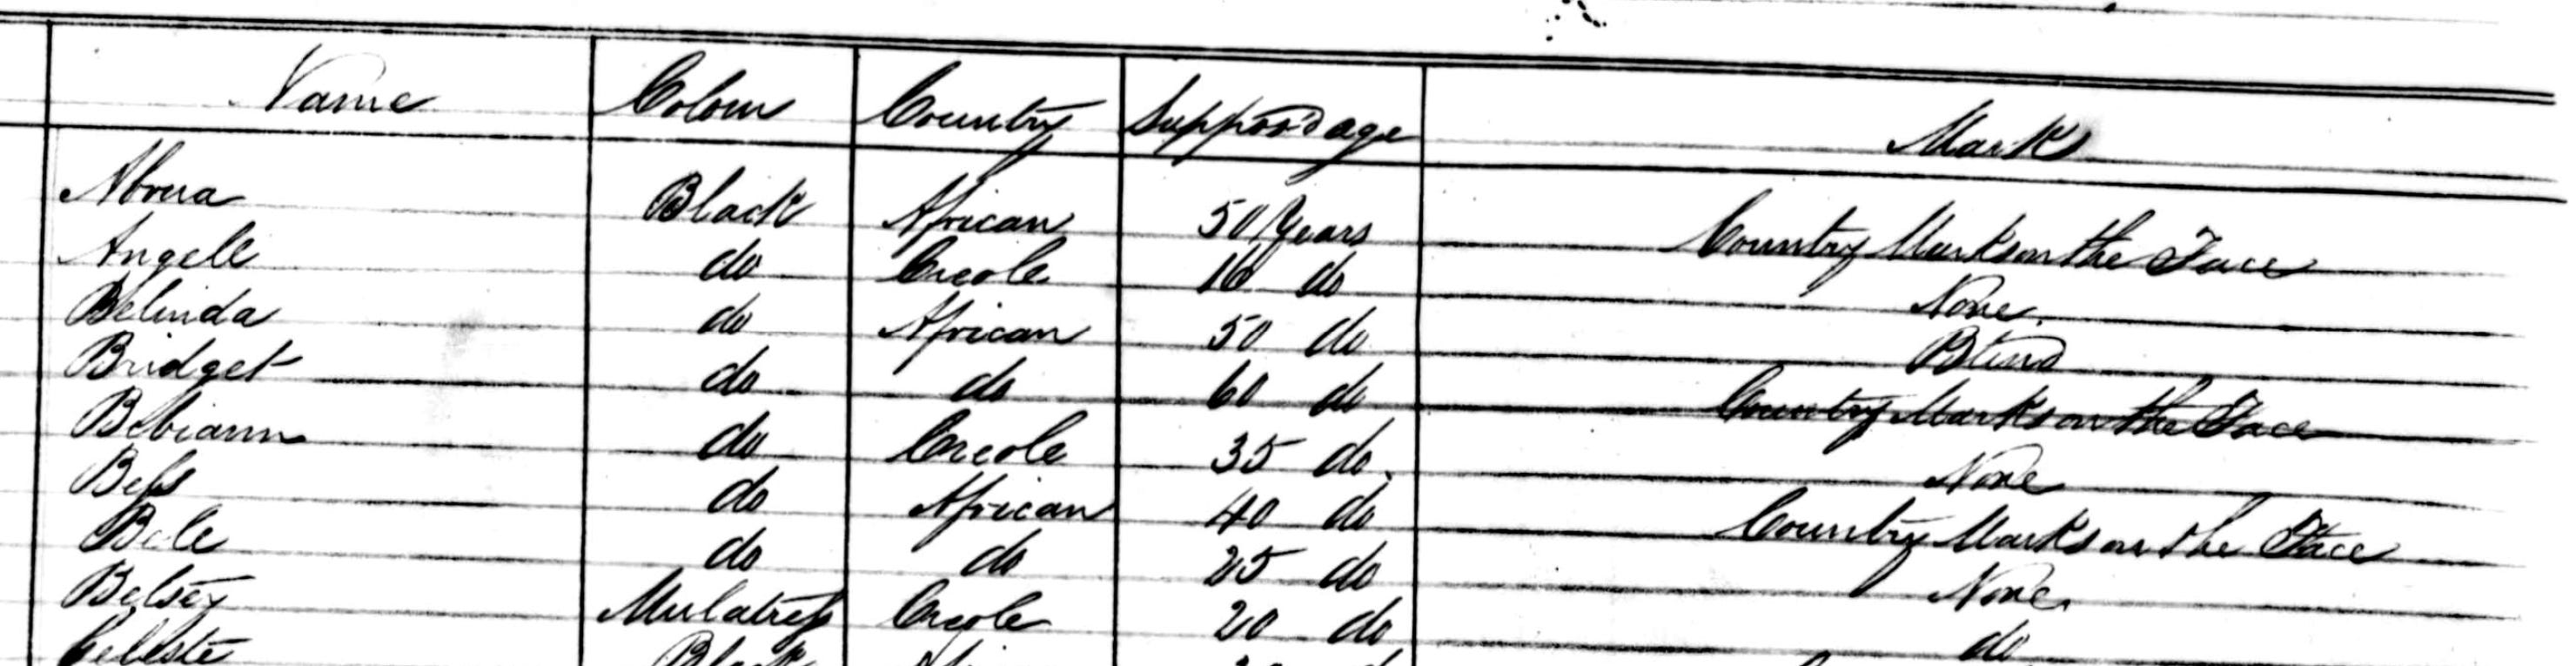 Name Colour Country Suppos'd age Mark
Abrua Black African 50 Years Country Marks on the Face
Angele do Creole 16 do None
Belinda do African 50 do Blind
Bridget do do 60 do Country Marks on the Face
Bebiann do Creole 35 do None
Bess do African 40 do Country Marks on the Face
Bele do do 25 do None
Betsey Mulatress Creole 20 do do
Celeste Black